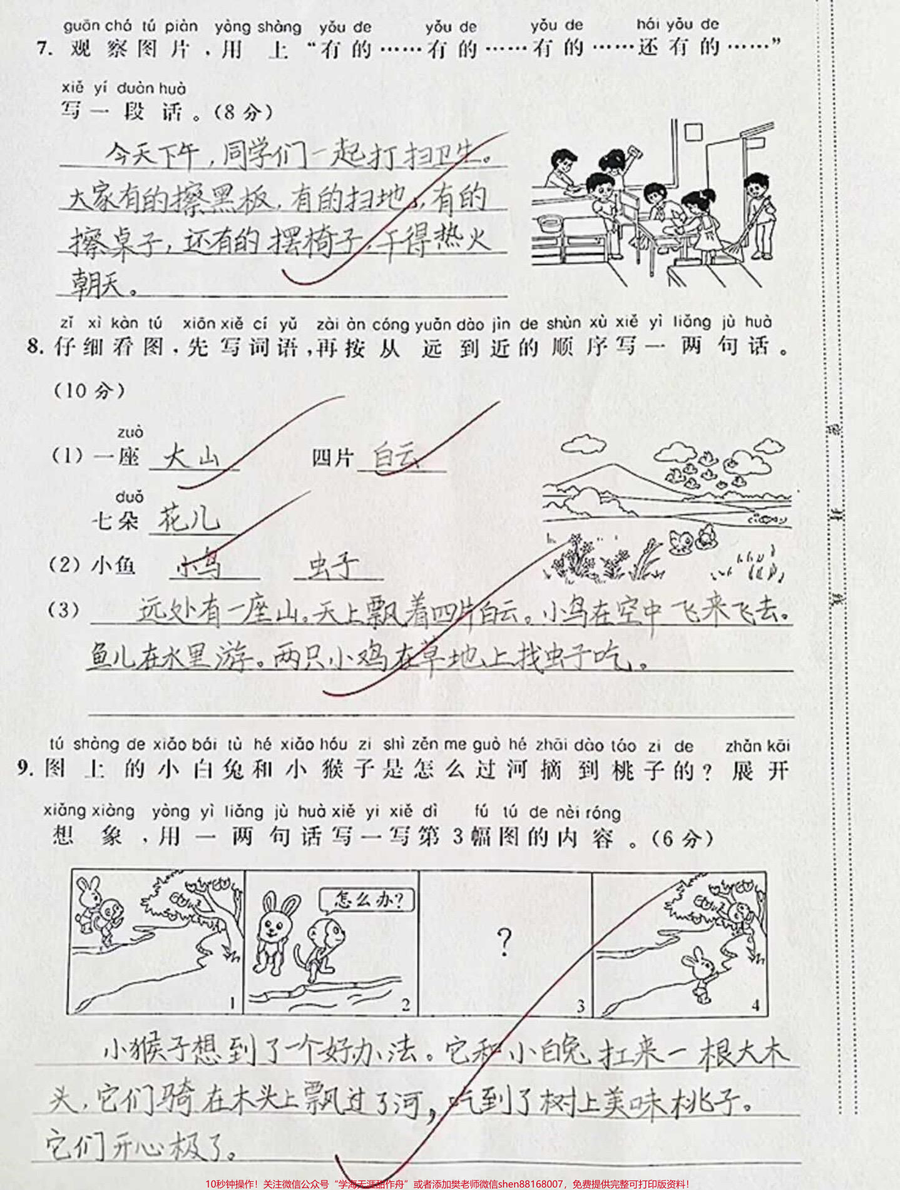 guān chá tú piàn yòng shàng yǒu de yǒu de yǒu de hái yǒu de
7. 观察图片，用上“有的……有的……有的……还有的……”
xiě yí duàn huà
写一段话。（8分）
今天下午，同学们一起打扫卫生。
大家有的擦黑板，有的扫地，有的
擦桌子，还有的摆椅子，干得热火
朝天。
zǐ xì kàn tú xiān xiě cí yǔ zài àn cóng yuǎn dào jìn de shùn xù xiě yì liǎng jù huà
8. 仔细看图，先写词语，再按从远到近的顺序写一两句话。
（10分）
zuò
（1）一座 大山 四片 白云
duǒ
七朵 花儿
（2）小鱼 小鸟 虫子
（3） 远处有一座山。天上飘着四片白云。小鸟在空中飞来飞去。
鱼儿在水里游。两只小鸡在草地上找虫子吃。
tú shàng de xiǎo bái tù hé xiǎo hóu zi shì zěn me guò hé zhāi dào táo zi de zhǎn kāi
9. 图上的小白兔和小猴子是怎么过河摘到桃子的？展开
xiǎng xiàng yòng yì liǎng jù huà xiě yi xiě dì fú tú de nèi róng
想象，用一两句话写一写第3幅图的内容。（6分）
怎么办？
？
1 2 3 4
小猴子想到了一个好办法。它和小白兔扛来一根大木
头，它们骑在木头上飘过了河，吃到了树上美味桃子。
它们开心极了。
10秒钟操作！关注微信公众号“学海无涯勤作舟”或者添加樊老师微信shen88168007，免费提供完整可打印版资料！